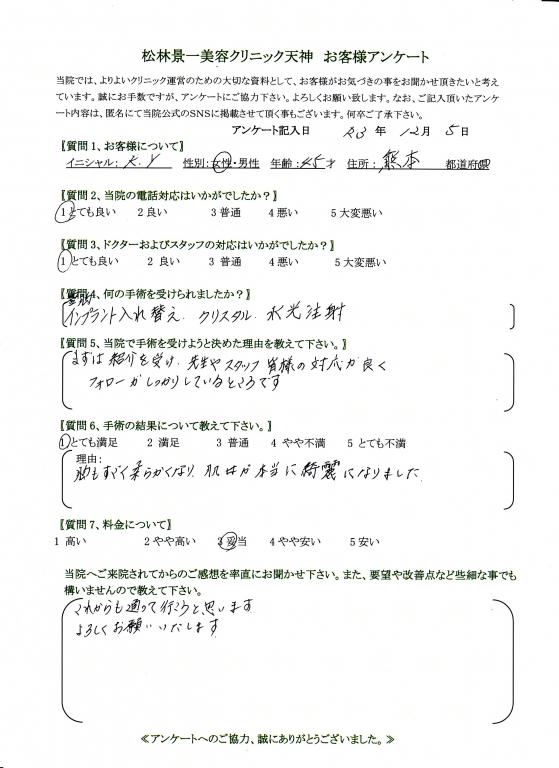 松林景一美容クリニック天神 お客様アンケート
当院では、よりよいクリニック運営のための大切な資料として、お客様がお気づきの事をお聞かせ頂きたいと考え
ています。誠にお手数ですが、アンケートにご協力下さい。よろしくお願い致します。なお、ご記入頂いたアンケ
ート内容は、匿名にて当院公式のSNSに掲載させて頂く事もございます。何卒ご了承下さい。
アンケート記入日 23 年 12月 5日
【質問1、お客様について】
イニシャル: K.Y 性別:女性・男性 年齢:45才 住所: 熊本 都道府県
【質問2、当院の電話対応はいかがでしたか?】
1とても良い 2良い 3普通 4悪い 5大変悪い
【質問3、ドクターおよびスタッフの対応はいかがでしたか?】
1とても良い 2 良い 3 普通 4悪い 5大変悪い
【質問4、何の手術を受けられましたか?】
豊胸
インプラント入れ替え. クリスタル. 水光注射
【質問5、当院で手術を受けようと決めた理由を教えて下さい。】
まずは紹介を受け. 先生やスタッフ皆様の対応が良く
フォローがしっかりしているところです
【質問6、手術の結果について教えて下さい。】
1とても満足 2 満足 3 普通 4 やや不満 5 とても不満
理由:
胸もすごく柔らかくなり. 肌サが本当に綺麗になりました
【質問7、料金について】
1 高い 2やや高い 3妥当 4やや安い 5安い
当院へご来院されてからのご感想を率直にお聞かせ下さい。また、要望や改善点など些細な事でも
構いませんので教えて下さい。
これからも通って行こうと思います
よろしくお願いいたします
≪アンケートへのご協力、誠にありがとうございました。≫